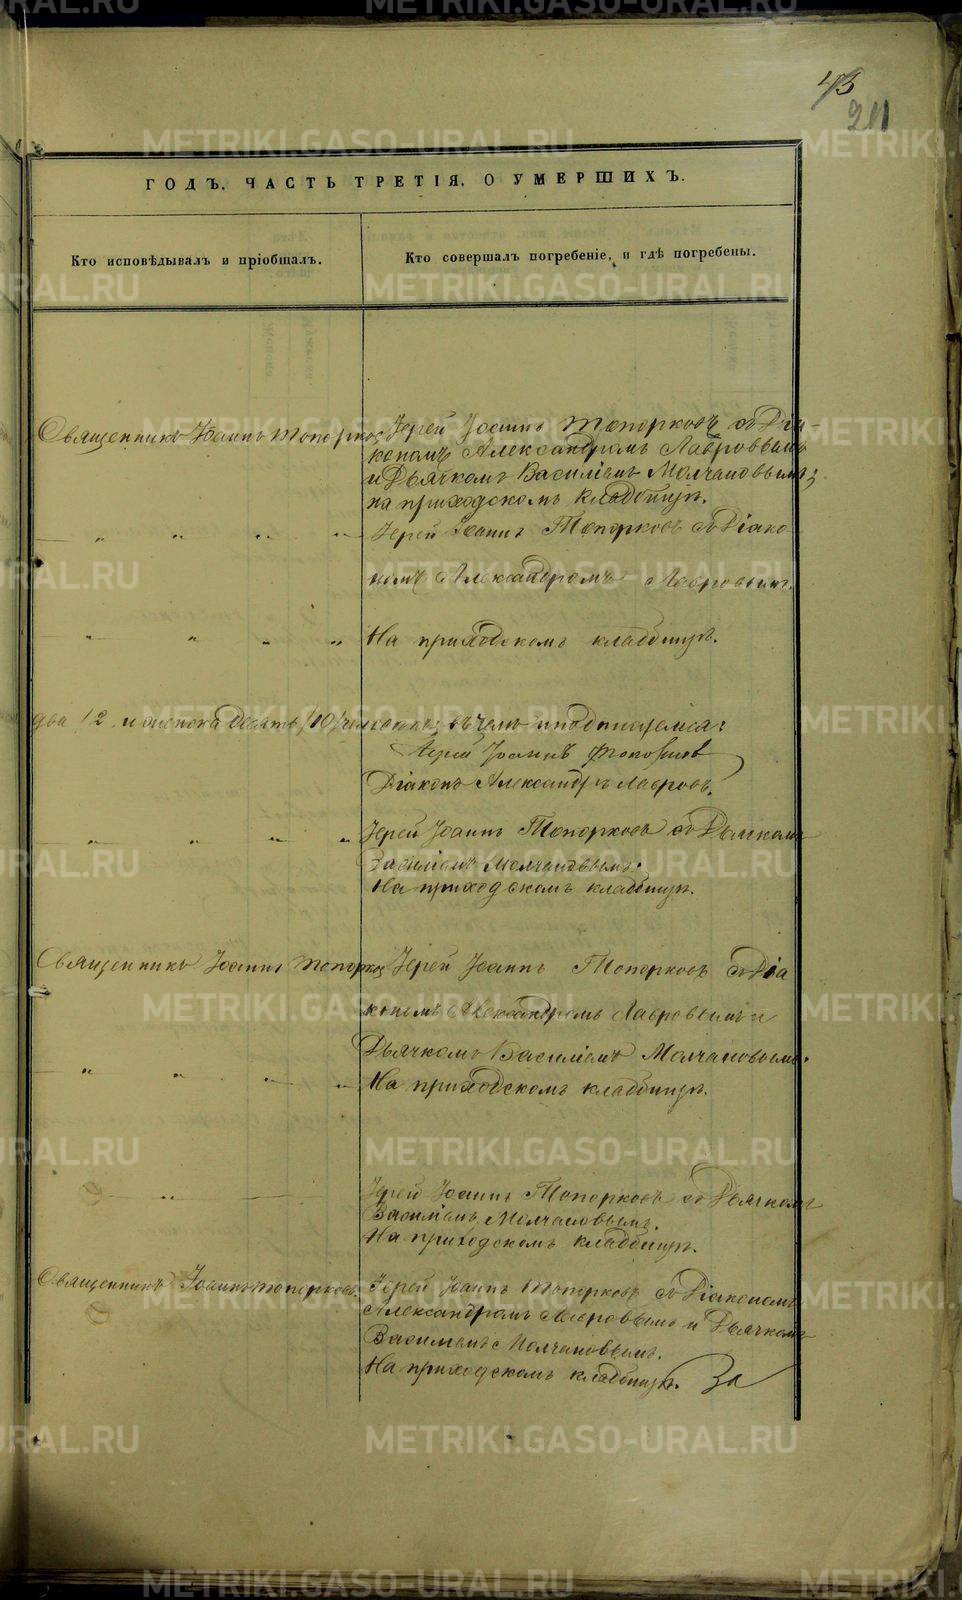 45
211
ГОДЪ. ЧАСТЬ ТРЕТІЯ. О УМЕРШИХЪ.
Кто исповѣдывалъ и пріобщалъ.
Кто совершалъ погребеніе, и гдѣ погребены.
Священникъ Іоаннъ Топорковъ
Іерей Іоаннъ Топорковъ съ Діа-
кономъ Александромъ Лавровымъ
и Дьячкомъ Василіемъ Молчановымъ;
на приходскомъ кладбищѣ.
" " " "
Іерей Іоаннъ Топорковъ съ Діако
номъ Александромъ Лавровымъ.
" " " "
На приходскомъ кладбищѣ.
два /2 и женска десять /10/ человѣкъ; въ чемъ и подписуемся:
Іерей Іоаннъ Топорковъ
Діаконъ Александръ Лавровъ.
" " " "
Іерей Іоаннъ Топорковъ съ Дьячкомъ
Василіемъ Молчановымъ.
На приходскомъ кладбищѣ.
Священникъ Іоаннъ Топорков
Іерей Іоаннъ Топорковъ съ Діа
кономъ Александромъ Лавровымъ и
Дьячкомъ Василіемъ Молчановымъ.
" " " "
На приходскомъ кладбищѣ.
"
Іерей Іоаннъ Топорковъ съ Дьячкомъ
Василіемъ Молчановымъ.
На приходскомъ кладбищѣ.
Священникъ Іоаннъ Топорковъ.
Іерей Іоаннъ Топорковъ съ Діакономъ
Александромъ Лавровымъ и Дьячкомъ
Василіемъ Молчановымъ.
На приходскомъ кладбищѣ. За
METRIKI.GASO-URAL.RU